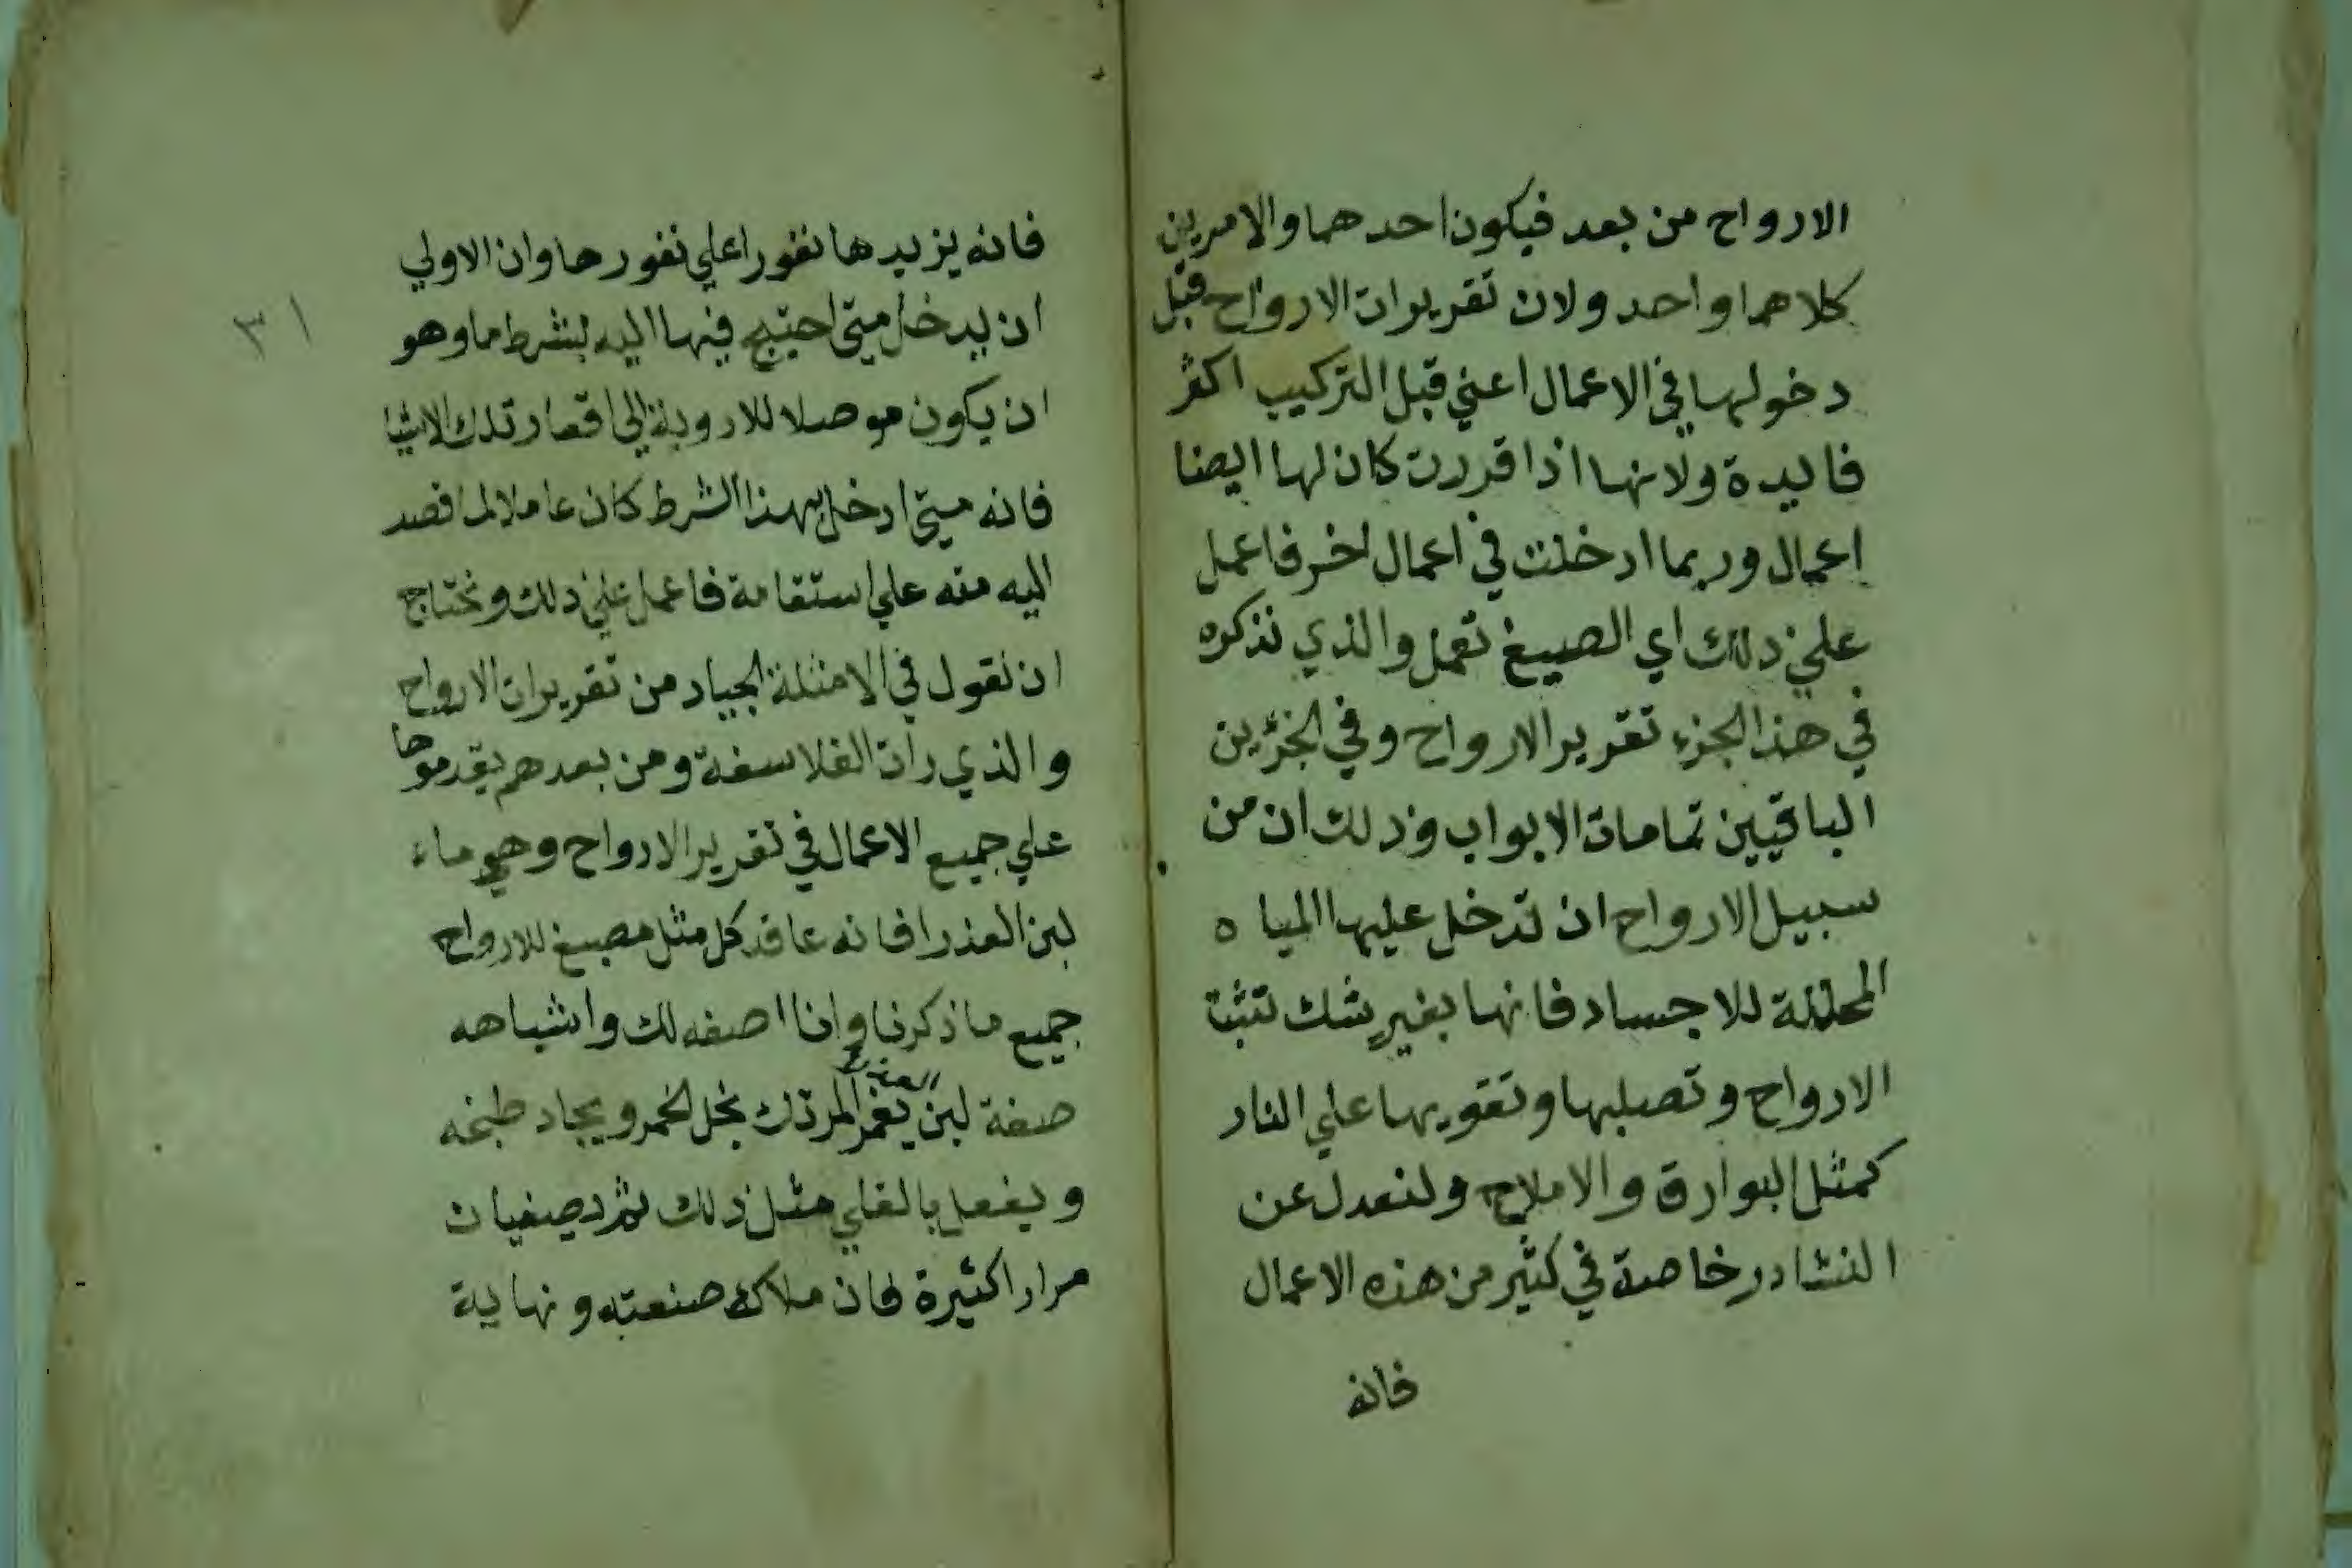 الارواح من بعد فيكون احدهما والامرين
كلاهما واحد ولان تقريرات الارواح قبل
دخولها في الاعمال اعني قبل التركيب اكثر
فايدة ولانها اذا قررت كان لها ايضا
اعمال وربما ادخلت في اعمال اخر فاعمل
علي ذلك اي الصبيغ تعمل والذي نذكره
في هذا الجزء تقرير الارواح وفي الجزئين
الباقيين تمامات الابواب وذلك ان من
سبيل الارواح ان تدخل عليها المياه
المحللة للاجساد فانها بغير شك تثبت
الارواح وتصلبها وتقويها علي النار
كمثل البوارق والاملاح ولنعدل عن
النشادر خاصة في كثير من هذه الاعمال
فانه
فانه يزيدها نفورا علي نفورها وان الاولي
ان يدخل متي احتيج فيها اليه بشرط ما وهو
ان يكون موصلا للادوية الي اقعار تلك الاشيا
فانه متي ادخل بهذا الشرط كان عاملا لما قصد
اليه منه علي استقامة فاعمل علي ذلك ونحتاج
ان نقول في الامثلة الجياد من تقريرات الارواح
والذي رات الفلاسفة ومن بعدهم يقدموها
علي جميع الاعمال في تقرير الارواح وهي ماء
لبن العذرا فانه عاقد كل مثل مصبغ للارواح
جميع ما ذكرنا وانا اصفه لك واشباهه
صفة لبن يغمر المرتك بخل الخمر ويجاد طبخه
ويفعل بالقلي مثل ذلك ثم يصفيان
مرارا كثيرة فان ملاك صنعته ونهاية
٣١